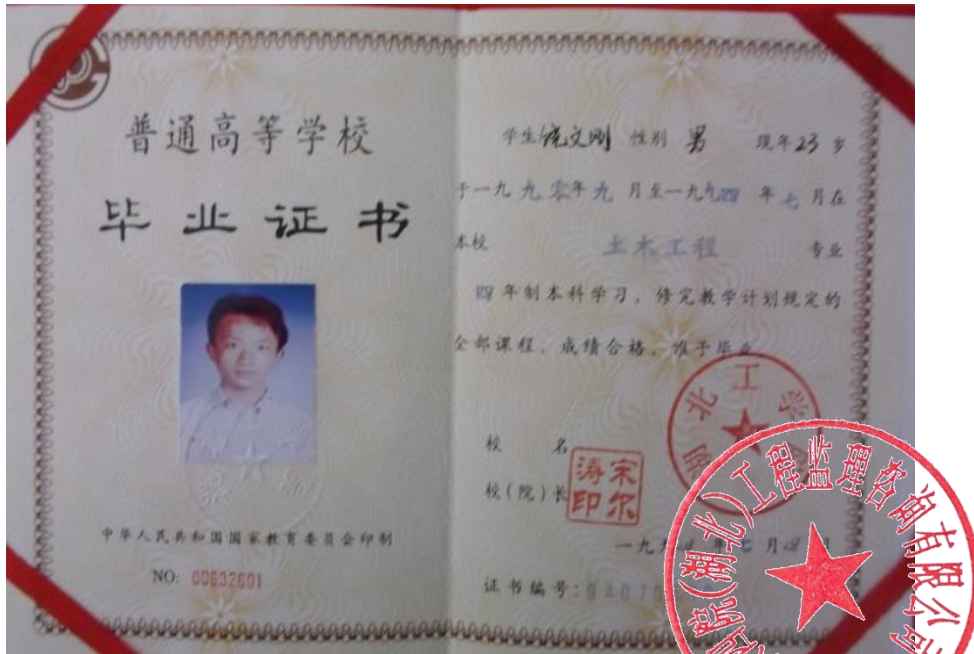 普通高等学校
毕业证书
中华人民共和国国家教育委员会印制
NO: 00632601
学生 文刚 性别 男 现年23岁
于一九九零年九月至一九九四年七月在
本校 土木工程 专业
四年制本科学习，修完教学计划规定的
全部课程，成绩合格，准予毕业
北工学
校 名
校(院)长
宋尔涛印
一九 年七月 日
证书编号:
(湖北)工程监理咨询有限公司